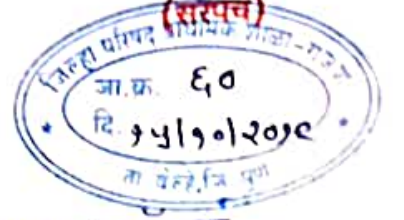 (सरपंच)
जिल्हा परिषद प्राथमिक शाळा -
जा.क्र. ६०
दि. १५/१०/२०१८
ता वेल्हे, जि पुणे